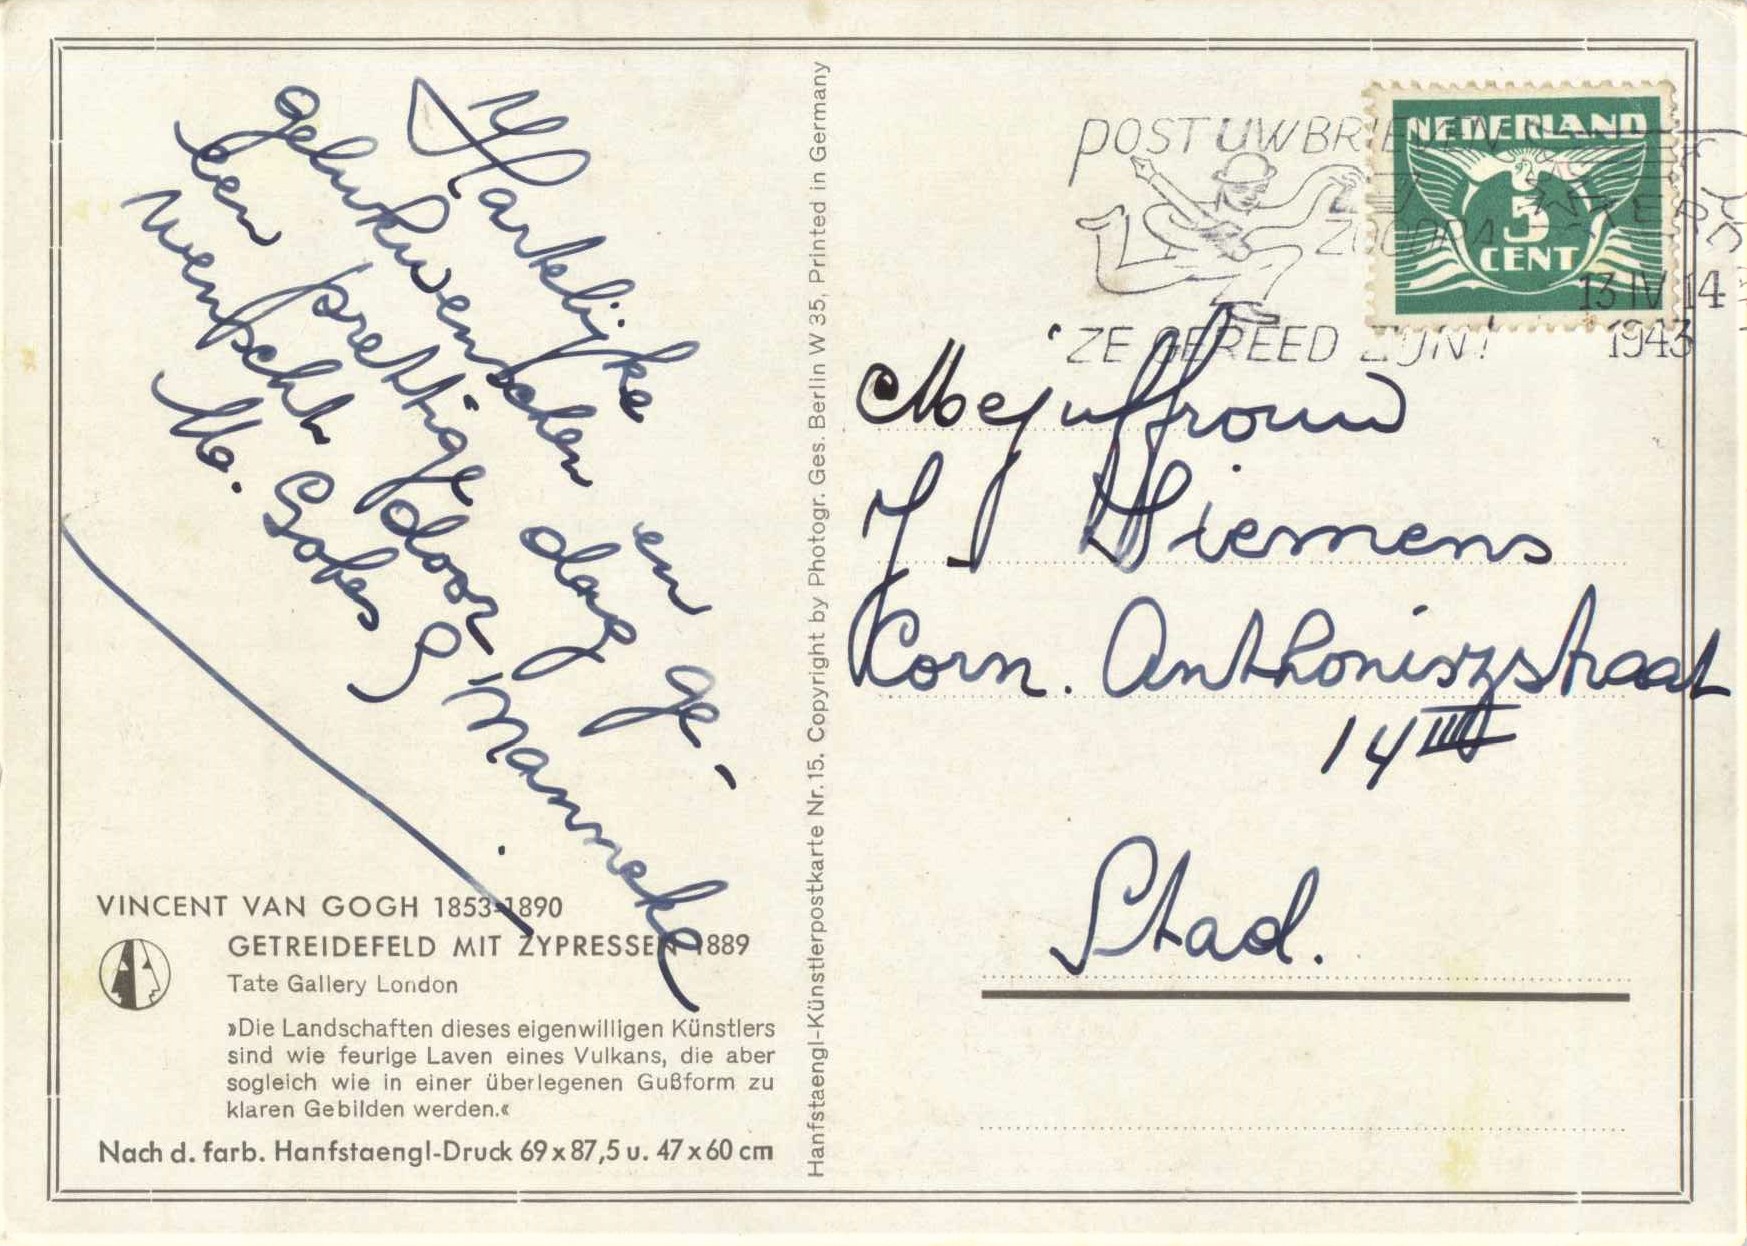 Hartelijke
gelukwenschen en
een prettige dag ge-
wenscht door
Me. Gobes
Manneke
VINCENT VAN GOGH 1853-1890
GETREIDEFELD MIT ZYPRESSEN 1889
Tate Gallery London
»Die Landschaften dieses eigenwilligen Künstlers
sind wie feurige Laven eines Vulkans, die aber
sogleich wie in einer überlegenen Gußform zu
klaren Gebilden werden.«
Nach d. farb. Hanfstaengl-Druck 69x87,5 u. 47x60 cm
Hanfstaengl-Künstlerpostkarte Nr. 15. Copyright by Photogr. Ges. Berlin W 35, Printed in Germany
POST UW BRIEVEN
ZOODRA
ZE GEREED ZIJN!
NEDERLAND
5
CENT
13 IV 14
1943
Mejuffrouw
J J Siemens
Corn. Anthoniszstraat
14 III
Stad.